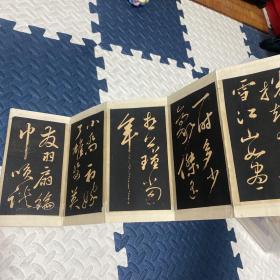 雪江山如畫
一時多少
豪傑遙
想公瑾當
年
小喬初嫁
了雄姿英
發羽扇綸
巾笑談